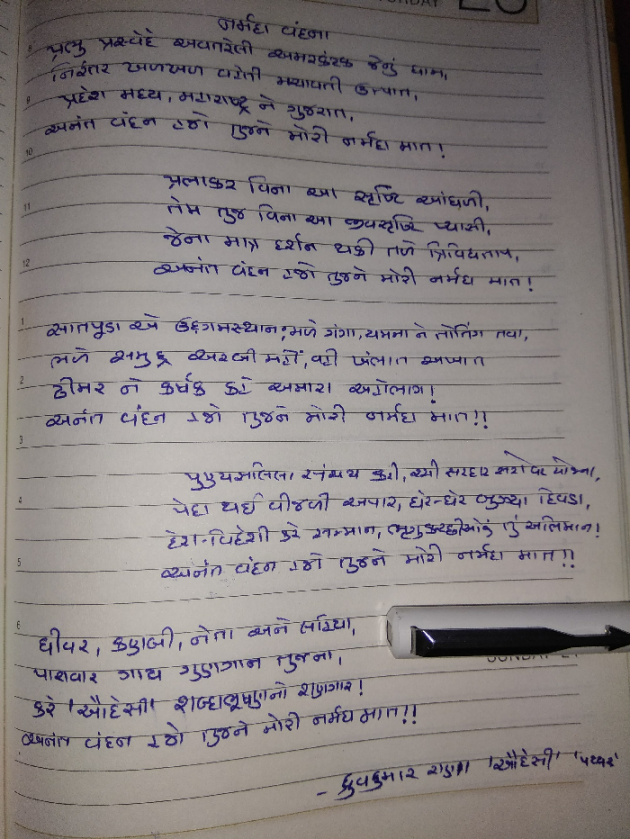 નર્મદા વંદના
પ્રભુ પ્રસ્વેદે અવતરેલી અમરકંટક જેનું ધામ,
નિરંતર ખળખળ વહેતી મચાવતી ઉત્પાત,
પ્રદેશ મધ્ય, મહારાષ્ટ્ર ને ગુજરાત,
અનંત વંદન હજો તુજને મોરી નર્મદા માત!
પ્રભાકર વિના આ સૃષ્ટિ આંધળી,
તેમ તુજ વિના આ જીવસૃષ્ટિ પ્યાસી,
જેના માત્ર દર્શન થકી ટળે ત્રિવિધતાપ,
અનંત વંદન હજો તુજને મોરી નર્મદા માત!
સાતપૂડા એ ઉદ્દગમસ્થાન, મળે ગંગા, યમના ને તવા,
ભળે સમુદ્ર અરબી મહીં, વહી ખંભાત અખાત
ઢીમર ને કર્ષક કહે અમારા અહોભાગ!
અનંત વંદન હજો તુજને મોરી નર્મદા માત!!
પુણ્યસલિલા સંચય કરી, રચી સરદાર સરોવર યોજના,
પેદા થઈ વીજળી અપાર, ઘેર-ઘેર દિવડા,
દેશ-વિદેશી કરે સન્માન, ભૃગુકચ્છીઓનું તું અભિમાન!
અનંત વંદન હજો તુજને મોરી નર્મદા માત!!
ધીવર, કણબી, નેતા અને
પારાવાર ગાય ગુણગાન તુજના,
કરે 'ઔદેસી' શબ્દાભૂષણનો શણગાર!
અનંત વંદન હજો તુજને મોરી નર્મદા માત!!
- ધ્રુવકુમાર રાણા 'ઔદેસી' 'પથ્થર'